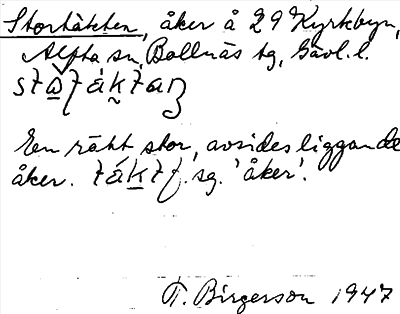 Stortäkten, åker å 29 Kyrkbyn,
Alfta sn, Bollnäs tg, Gävl. l.
En rätt stor, avsides liggande
åker. sg. 'åker'.
T. Birgerson 1947